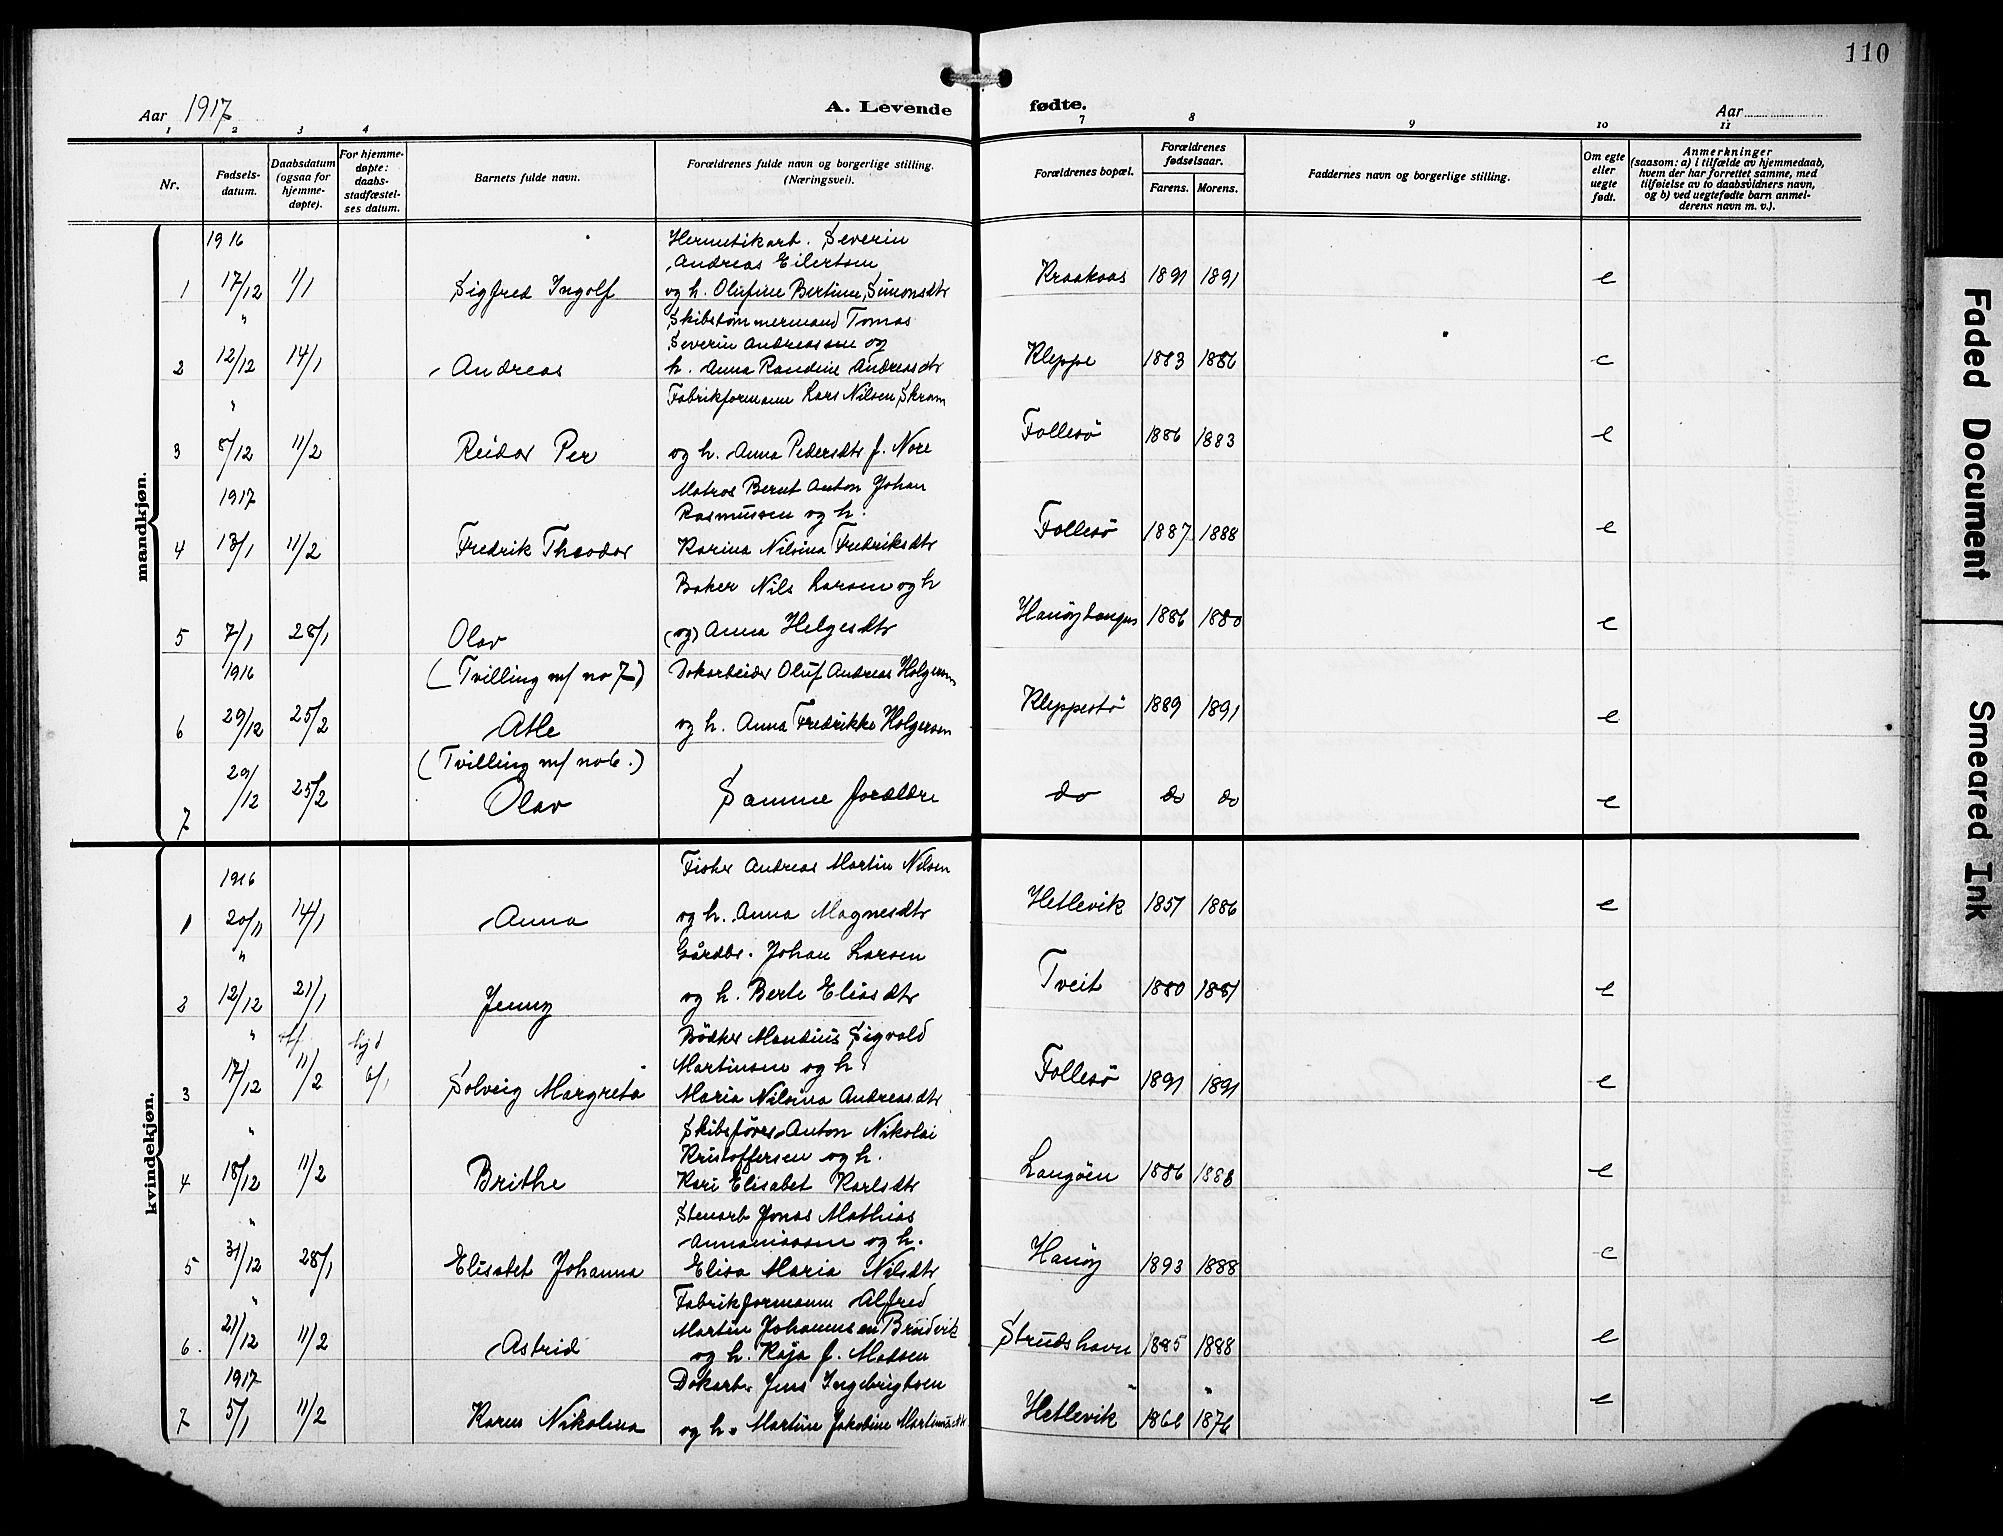 110
Aar 1917
A. Levende fødte.
Aar
1 2 3 4 7 8 9 10 11
Nr.
Fødsels-
datum.
Daabsdatum
(ogsaa for
hjemme-
døpte).
For hjemme-
døpte:
daabs-
stadfæstel-
ses datum.
Barnets fulde navn.
Forældrenes fulde navn og borgerlige stilling.
(Næringsvei).
Forældrenes bopæl.
Forældrenes
fødselsaar.
Farens. Morens.
Faddernes navn og borgerlige stilling.
Om egte
eller
uegte
født.
Anmerkninger
(saasom: a) i tilfælde av hjemmedaab,
hvem der har forrettet samme, med
tilføielse av to daabsvidners navn,
og b) ved uegtefødte barn anmel-
derens navn m. v.).
mandkjøn.
1916
Hermetikarb. Severin
Andreas Eilertsen
1 17/12 1/1 Sigfred Ingolf og h. Olufine Bertine Simonsdtr Kraakaas 1891 1891 e
"
Skibstømmermand Tomas
Severin Andreassen og
2 12/12 14/1 Andreas h. Anna Randine Andreasdtr Kleppe 1883 1886 e
"
Fabrikformann Lars Nilsen Skram
3 8/12 11/2 Reidar Per og h. Anna Pedersdtr f. Nore Follesø 1886 1883 e
1917
Matros Bernt Anton Johan
Rasmussen og h.
4 13/1 11/2 Fredrik Theodor Karina Nilsina Fredriksdtr Follesø 1887 1888 e
Baker Nils Larsen og h
5 7/1 28/1 Olav (og) Anna Helgesdtr Hanøytangen 1886 1880 e
1916
(Tvilling m/ no 7) Dokarbeider Oluf Andreas Holgersen
6 29/12 25/2 Atle og h. Anna Fredrikke Holgersen Kleppestø 1889 1891 e
(Tvilling m/ no 6.)
7 29/12 25/2 Olav Samme forældre do do do e
kvindekjøn.
1916
Fisker Andreas Martin Nilsen
1 20/11 14/1 Anna og h. Anna Magnesdtr Hetlevik 1857 1886 e
"
Gårdbr. Johan Larsen
2 12/12 21/1 Jenny og h. Berte Eliasdtr Tveit 1880 1881 e
" hjd
Bødker Mandius Sigvald
Martinsen og h
3 17/12 11/2 6/1 Solveig Margreta Maria Nilsina Andreasdtr Follesø 1891 1891 e
"
Skibsfører Anton Nikolai
Kristoffersen og h.
4 18/12 11/2 Brithe Kari Elisabet Karlsdtr Langøen 1886 1888 e
"
Stenarb Jonas Mathias
Annaniassen og h.
5 31/12 28/1 Elisabet Johanna Elisa Maria Nilsdtr Hanøy 1893 1888 e
"
Fabrikformann Alfred
Martin Johannesen Brudvik
6. 21/12 11/2 Astrid og h. Kaja f. Madsen Strudshavn 1885 1888 e
1917
Dokarb. Jens Ingebrigtsen
7 5/1 11/2 Karen Nikolina og h. Martine Jakobine Martinusdtr Hetlevik 1866 1876 e
Faded Document
Smeared Ink